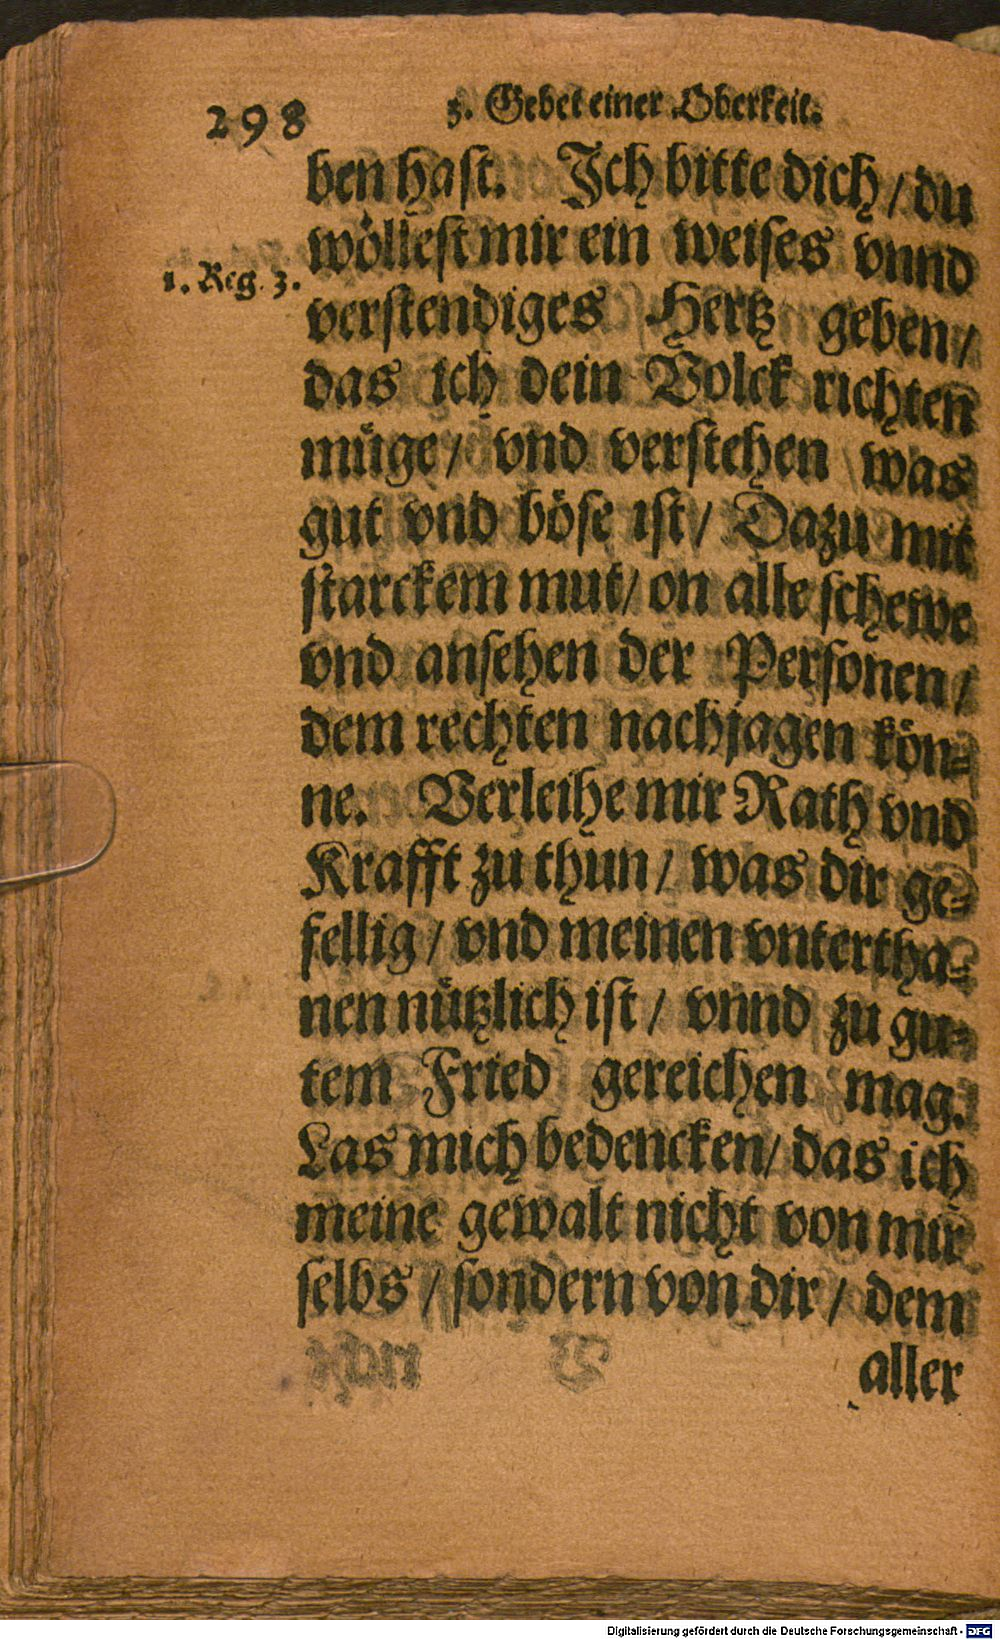 298
3. Gebet einer Oberkeit.
ben hast. Ich bitte dich / du
wöllest mir ein weises vnnd
1. Reg. 3.
verstendiges Hertz geben /
das ich dein Volck richten
müge / vnd verstehen was
gut vnd böse ist / Dazu mit
starckem mut / on alle schewe
vnd ansehen der Personen /
dem rechten nachjagen kön-
ne. Verleihe mir Rath vnd
Krafft zu thun / was dir ge-
fellig / vnd meinen vntertha-
nen nützlich ist / vnnd zu gu-
tem Fried gereichen mag.
Las mich bedencken / das ich
meine gewalt nicht von mir
selbs / sondern von dir / dem
aller
Digitalisierung gefördert durch die Deutsche Forschungsgemeinschaft - DFG